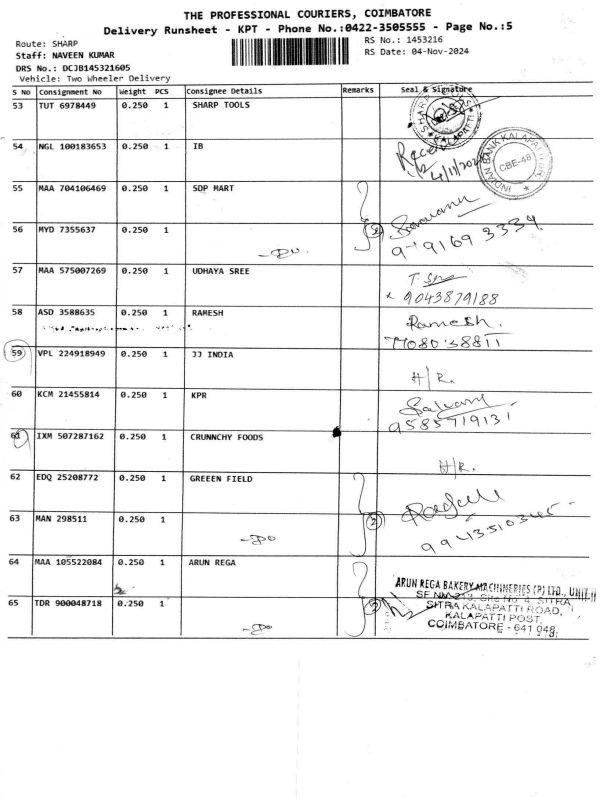 THE PROFESSIONAL COURIERS, COIMBATORE
Delivery Runsheet - KPT - Phone No.:0422-3505555 - Page No.:5
Route: SHARP
RS No.: 1453216
Staff: NAVEEN KUMAR
RS Date: 04-Nov-2024
DRS No.: DCJB145321605
Vehicle: Two Wheeler Delivery
S No Consignment No Weight PCS Consignee Details Remarks Seal & Signature
53 TUT 6978449 0.250 1 SHARP TOOLS
54 NGL 100183653 0.250 1 IB
INDIAN BANK KALAPATTI
CBE-48
55 MAA 704106469 0.250 1 SDP MART
56 MYD 7355637 0.250 1
57 MAA 575007269 0.250 1 UDHAYA SREE
9043879188
58 ASD 3588635 0.250 1 RAMESH Ramesh.
59 VPL 224918949 0.250 1 JJ INDIA
H/R.
60 KCM 21455814 0.250 1 KPR
9585719131
61 IXM 507287162 0.250 1 CRUNNCHY FOODS
H/R.
62 EDQ 25208772 0.250 1 GREEEN FIELD
63 MAN 298511 0.250 1
64 MAA 105522084 0.250 1 ARUN REGA
ARUN REGA BAKERY MACHINERIES (P) LTD., UNIT-II
65 TDR 900048718 0.250 1
SITRA KALAPATTI ROAD,
KALAPATTI POST,
COIMBATORE - 641 048.